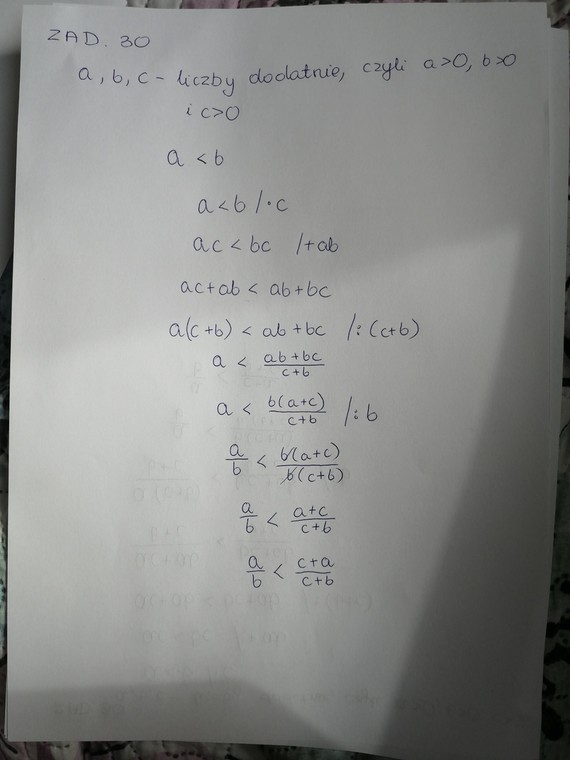 ZAD. 30
a, b, c - liczby dodatnie, czyli a>0, b>0
i c>0
a < b
a < b /·c
ac < bc /+ab
ac+ab < ab+bc
a(c+b) < ab+bc /:(c+b)
a < \frac{ab+bc}{c+b}
a < \frac{b(a+c)}{c+b} /:b
\frac{a}{b} < \frac{b(a+c)}{b(c+b)}
\frac{a}{b} < \frac{a+c}{c+b}
\frac{a}{b} < \frac{c+a}{c+b}